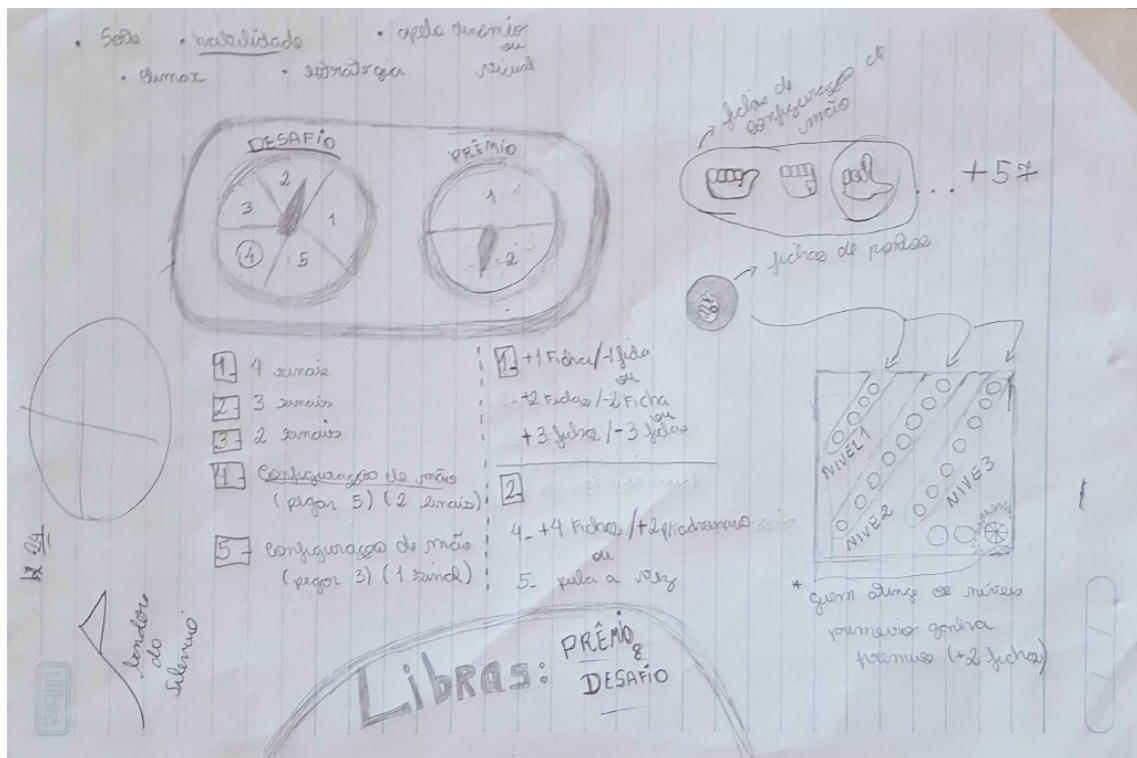 • Sorte • habilidade • apelo dinâmico
ou
• climax • estratégia visual
DESAFIO
PRÊMIO
2
3
1
4
5
1
2
fichas de
configuração de
mão
... +57
fichas de pontos
1- 4 sinais
2- 3 sinais
3- 2 sinais
4- configuração de mão
(pegar 5) (2 sinais)
5- configuração de mão
(pegar 3) (1 sinal)
1- +1 Ficha/-1 ficha
ou
+2 Fichas/-2 Ficha
ou
+3 fichas/-3 fichas
2-
4- +4 Fichas/+2
ou
5- pula a vez
NIVEL 1
NIVEL 2
NIVEL 3
* quem atinge os níveis
primeiro ganha
prêmios (+2 fichas)
do
Silêncio
Libras: PRÊMIO
&
DESAFIO
tilibra